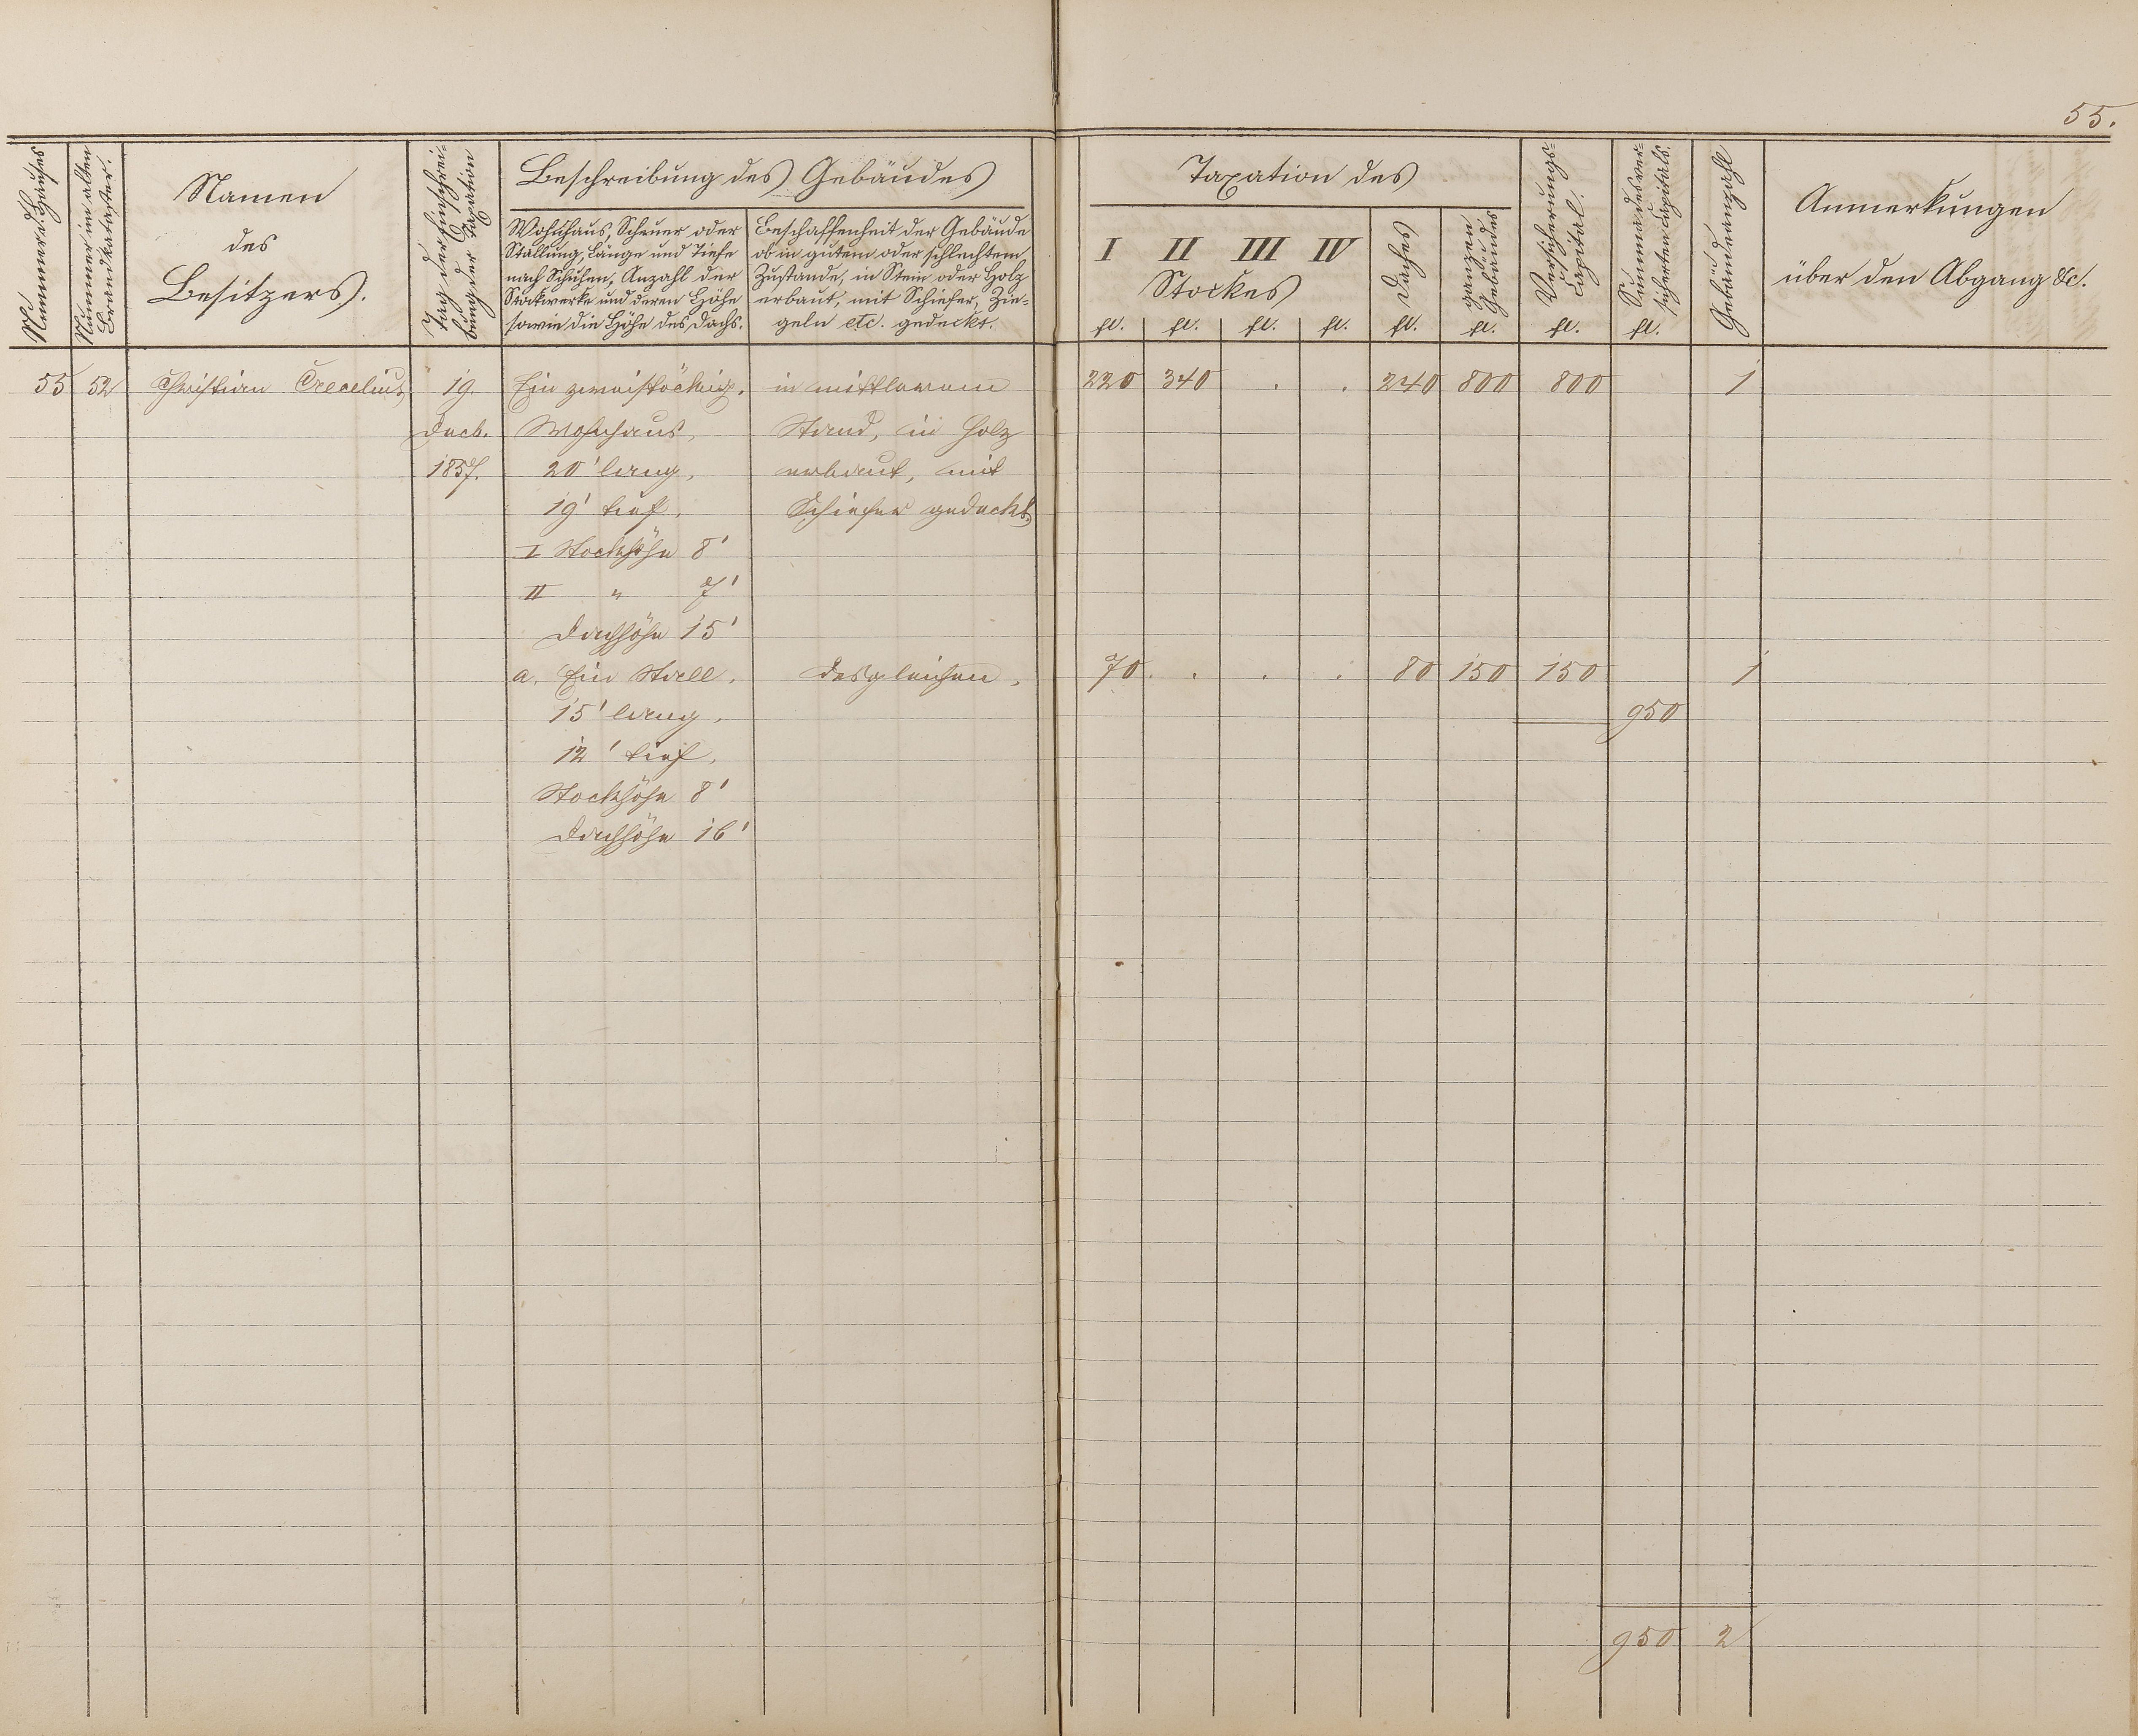 55.
Nummer d. Hauses
Nummer im alten
Brandkataster.
Namen
des
Besitzers.
Tag der Einschrei-
bung der Taxation
Beschreibung des Gebäudes
Wohnhaus, Scheuer oder
Stallung, Länge und Tiefe
nach Schuhen, Anzahl der
Stockwerke und deren Höhe
sowie die Höhe des Dachs.
Beschaffenheit der Gebäude
ob in gutem oder schlechtem
Zustande, in Stein oder Holz
erbaut, mit Schiefer, Zie-
geln etc. gedeckt.
Taxation des
I II III IV
Stockes
Daches
ganzen
Gebäudes
Versicherungs-
Capital.
Summa des ver-
sicherten Capitals.
Gebäudeanzahl
Anmerkungen
über den Abgang &c.
fl. fl. fl. fl. fl. fl. fl. fl.
55 52 Christian Crecelius 19. Ein zweistöckig. in mittlerem 220 340 . . 240 800 800 1
Decb. Wohnhaus, Stand, in Holz
1857. 20' lang, erbaut, mit
19' tief, Schiefer gedeckt.
I Stockhöhe 8'
II " 7'
Dachhöhe 15'
a. Ein Stall, desgleichen, 70 . . . 80 150 150 1
15' lang, 950
12' tief,
Stockhöhe 8'
Dachhöhe 16'
950 2